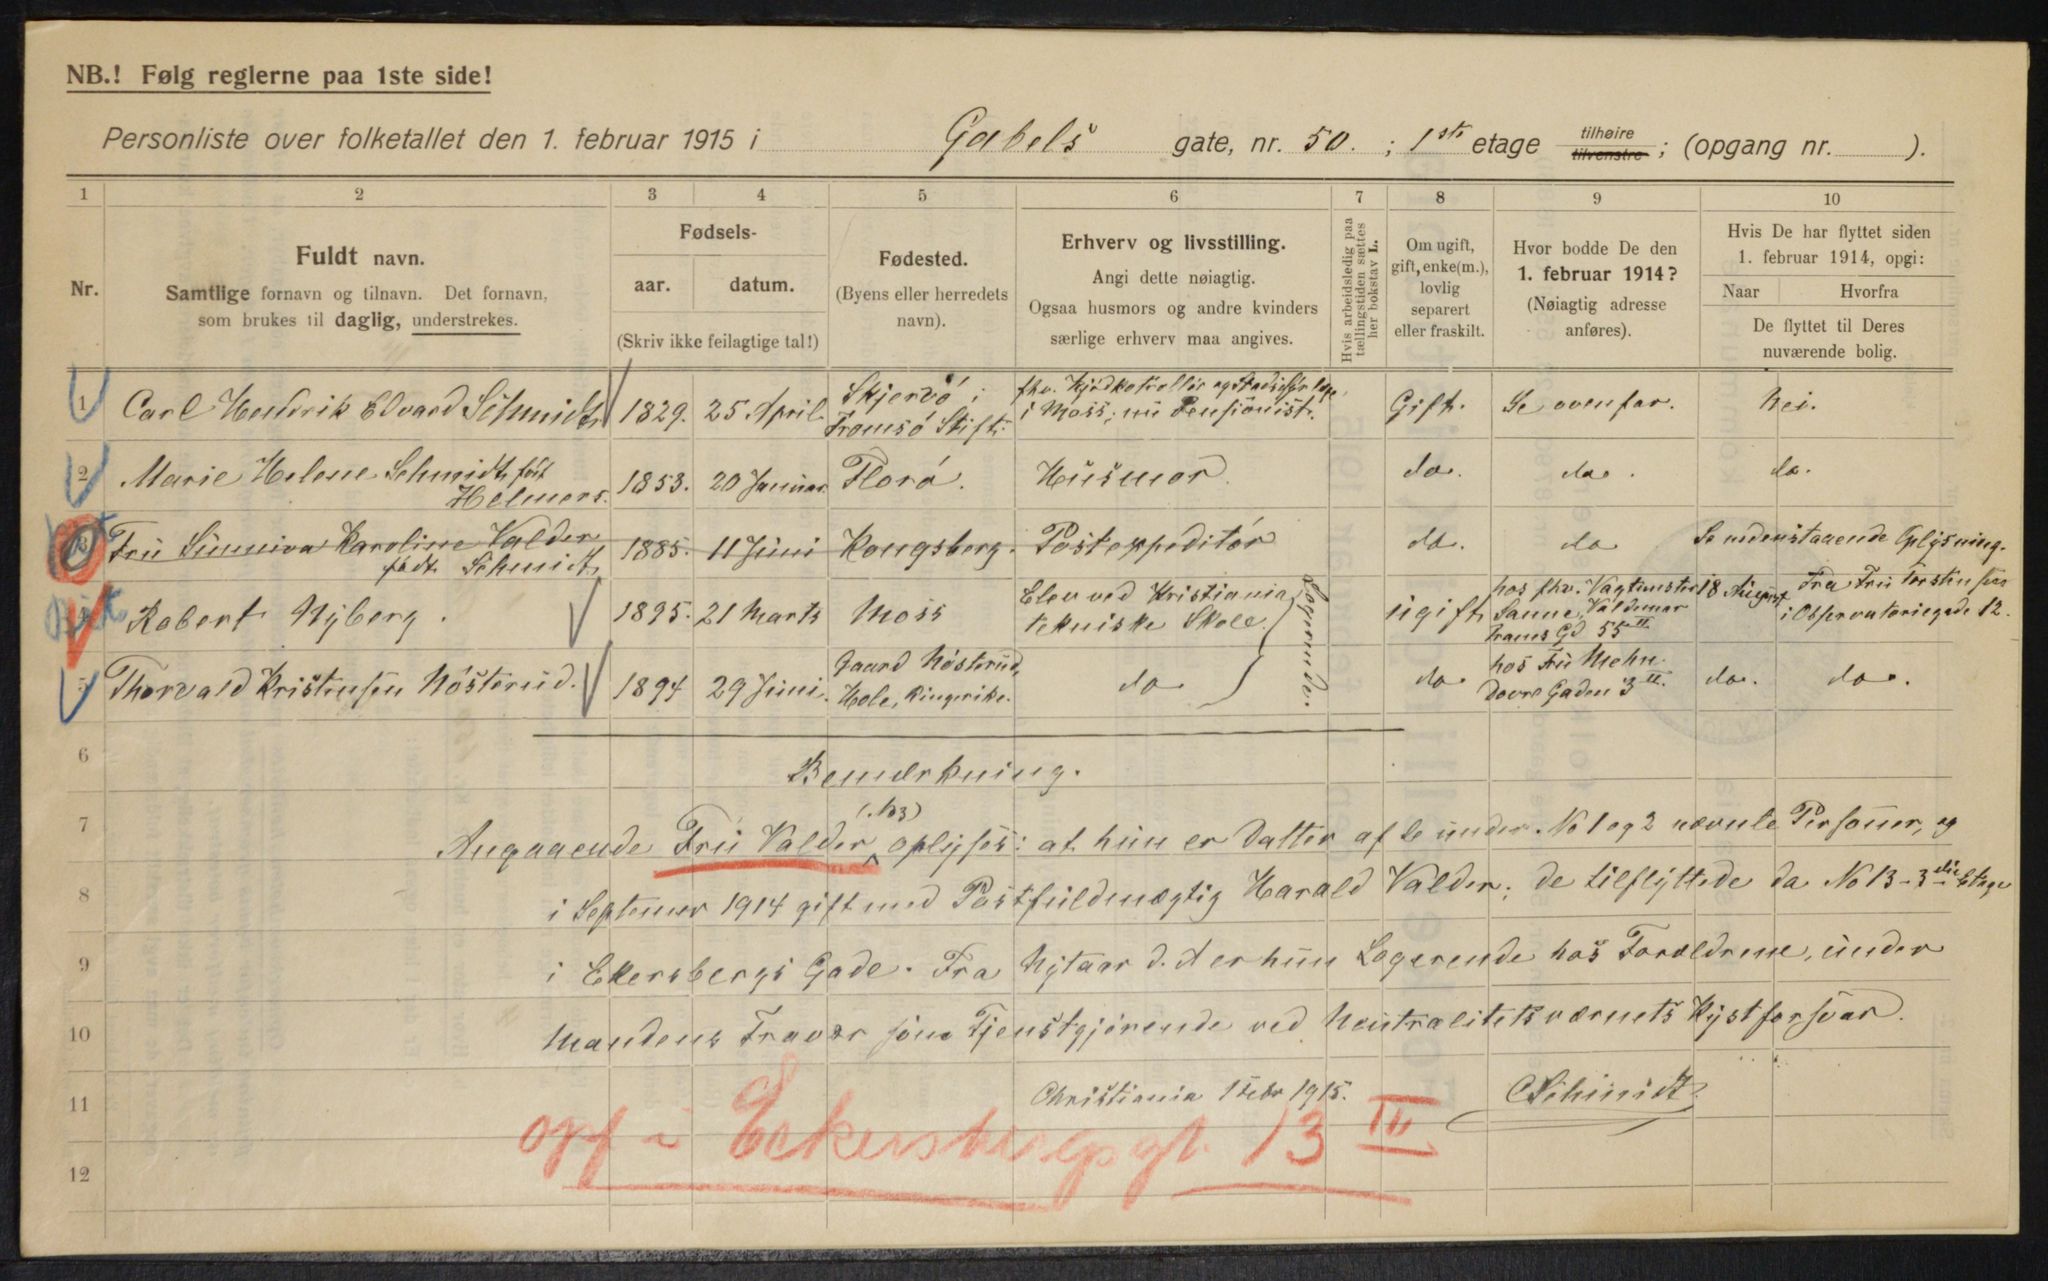 NB.! Følg reglerne paa 1ste side!
Personliste over folketallet den 1. februar 1915 i Gabels gate, nr. 50. ; 1ste etage tilhøire tilvenstre ; (opgang nr. ).
1 2 3 4 5 6 7 8 9 10
Nr.
Fuldt navn.
Samtlige fornavn og tilnavn. Det fornavn,
som brukes til daglig, understrekes.
Fødsels-
aar. datum.
(Skriv ikke feilagtige tal!)
Fødested.
(Byens eller herredets
navn).
Erhverv og livsstilling.
Angi dette nøiagtig.
Ogsaa husmors og andre kvinders
særlige erhverv maa angives.
Hvis arbeidsledig paa
tællingstiden sættes
her bokstav L.
Om ugift,
gift, enke(m.),
lovlig
separert
eller fraskilt.
Hvor bodde De den
1. februar 1914?
(Nøiagtig adresse
anføres).
Hvis De har flyttet siden
1. februar 1914, opgi:
Naar Hvorfra
De flyttet til Deres
nuværende bolig.
1 Carl Hendrik Edvard Schmidt 1829. 25 April. Skjervö i Tromsö Stift. fhv. Kjödkontrollör og Stadsdyrlæge i Moss; nu Pensionist. Gift. Se ovenfor. Nei.
2 Marie Helene Schmidt, föt Helmers. 1853. 20 Januar. Florö. Husmor do. do. do.
3 Fru Sunniva Karoline Valder födt Schmidt 1885. 11 Juni Kongsberg. Postexpeditör do. do Se nedenstaaende Oplysning.
4 Robert Nyberg. 1895. 21 Marts Moss Elev ved Kristiania tekniske Skole Logerende. ugift hos fhv. Vagtmester Sanne, Valdemar Thranes Gd 55 II 18 August Fra Fru Torstensen i Observatoriegade 12.
5 Thorvald Kristensen Nösterud. 1894 29 Juni. Gaard Nösterud, Hole, Ringerike. do do hos Fru Mohn. Dovre Gaden 3 II. do. do.
6 Bemærkning.
(No 3)
7 Angaaende Fru Valder oplyses: at hun er Datter af de under No 1 og 2 nævnte Personer, og
8 i Septemer 1914 gift med Postfuldmægtig Harald Valder; de tilflyttede da No 13 - 3die Etage
9 i Ekersbergs Gade. Fra Nytaar d. A er hun Logerende hos Forældrene, under
10 Mandens Fravær som Tjenstgjörende ved Neutralitetsværnets Kystforsvar.
11 Christiania 1 Febr 1915. CSchmidt.
opf i Eckersbergs gt. 13 III
12